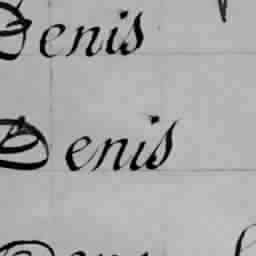 Denis
Denis